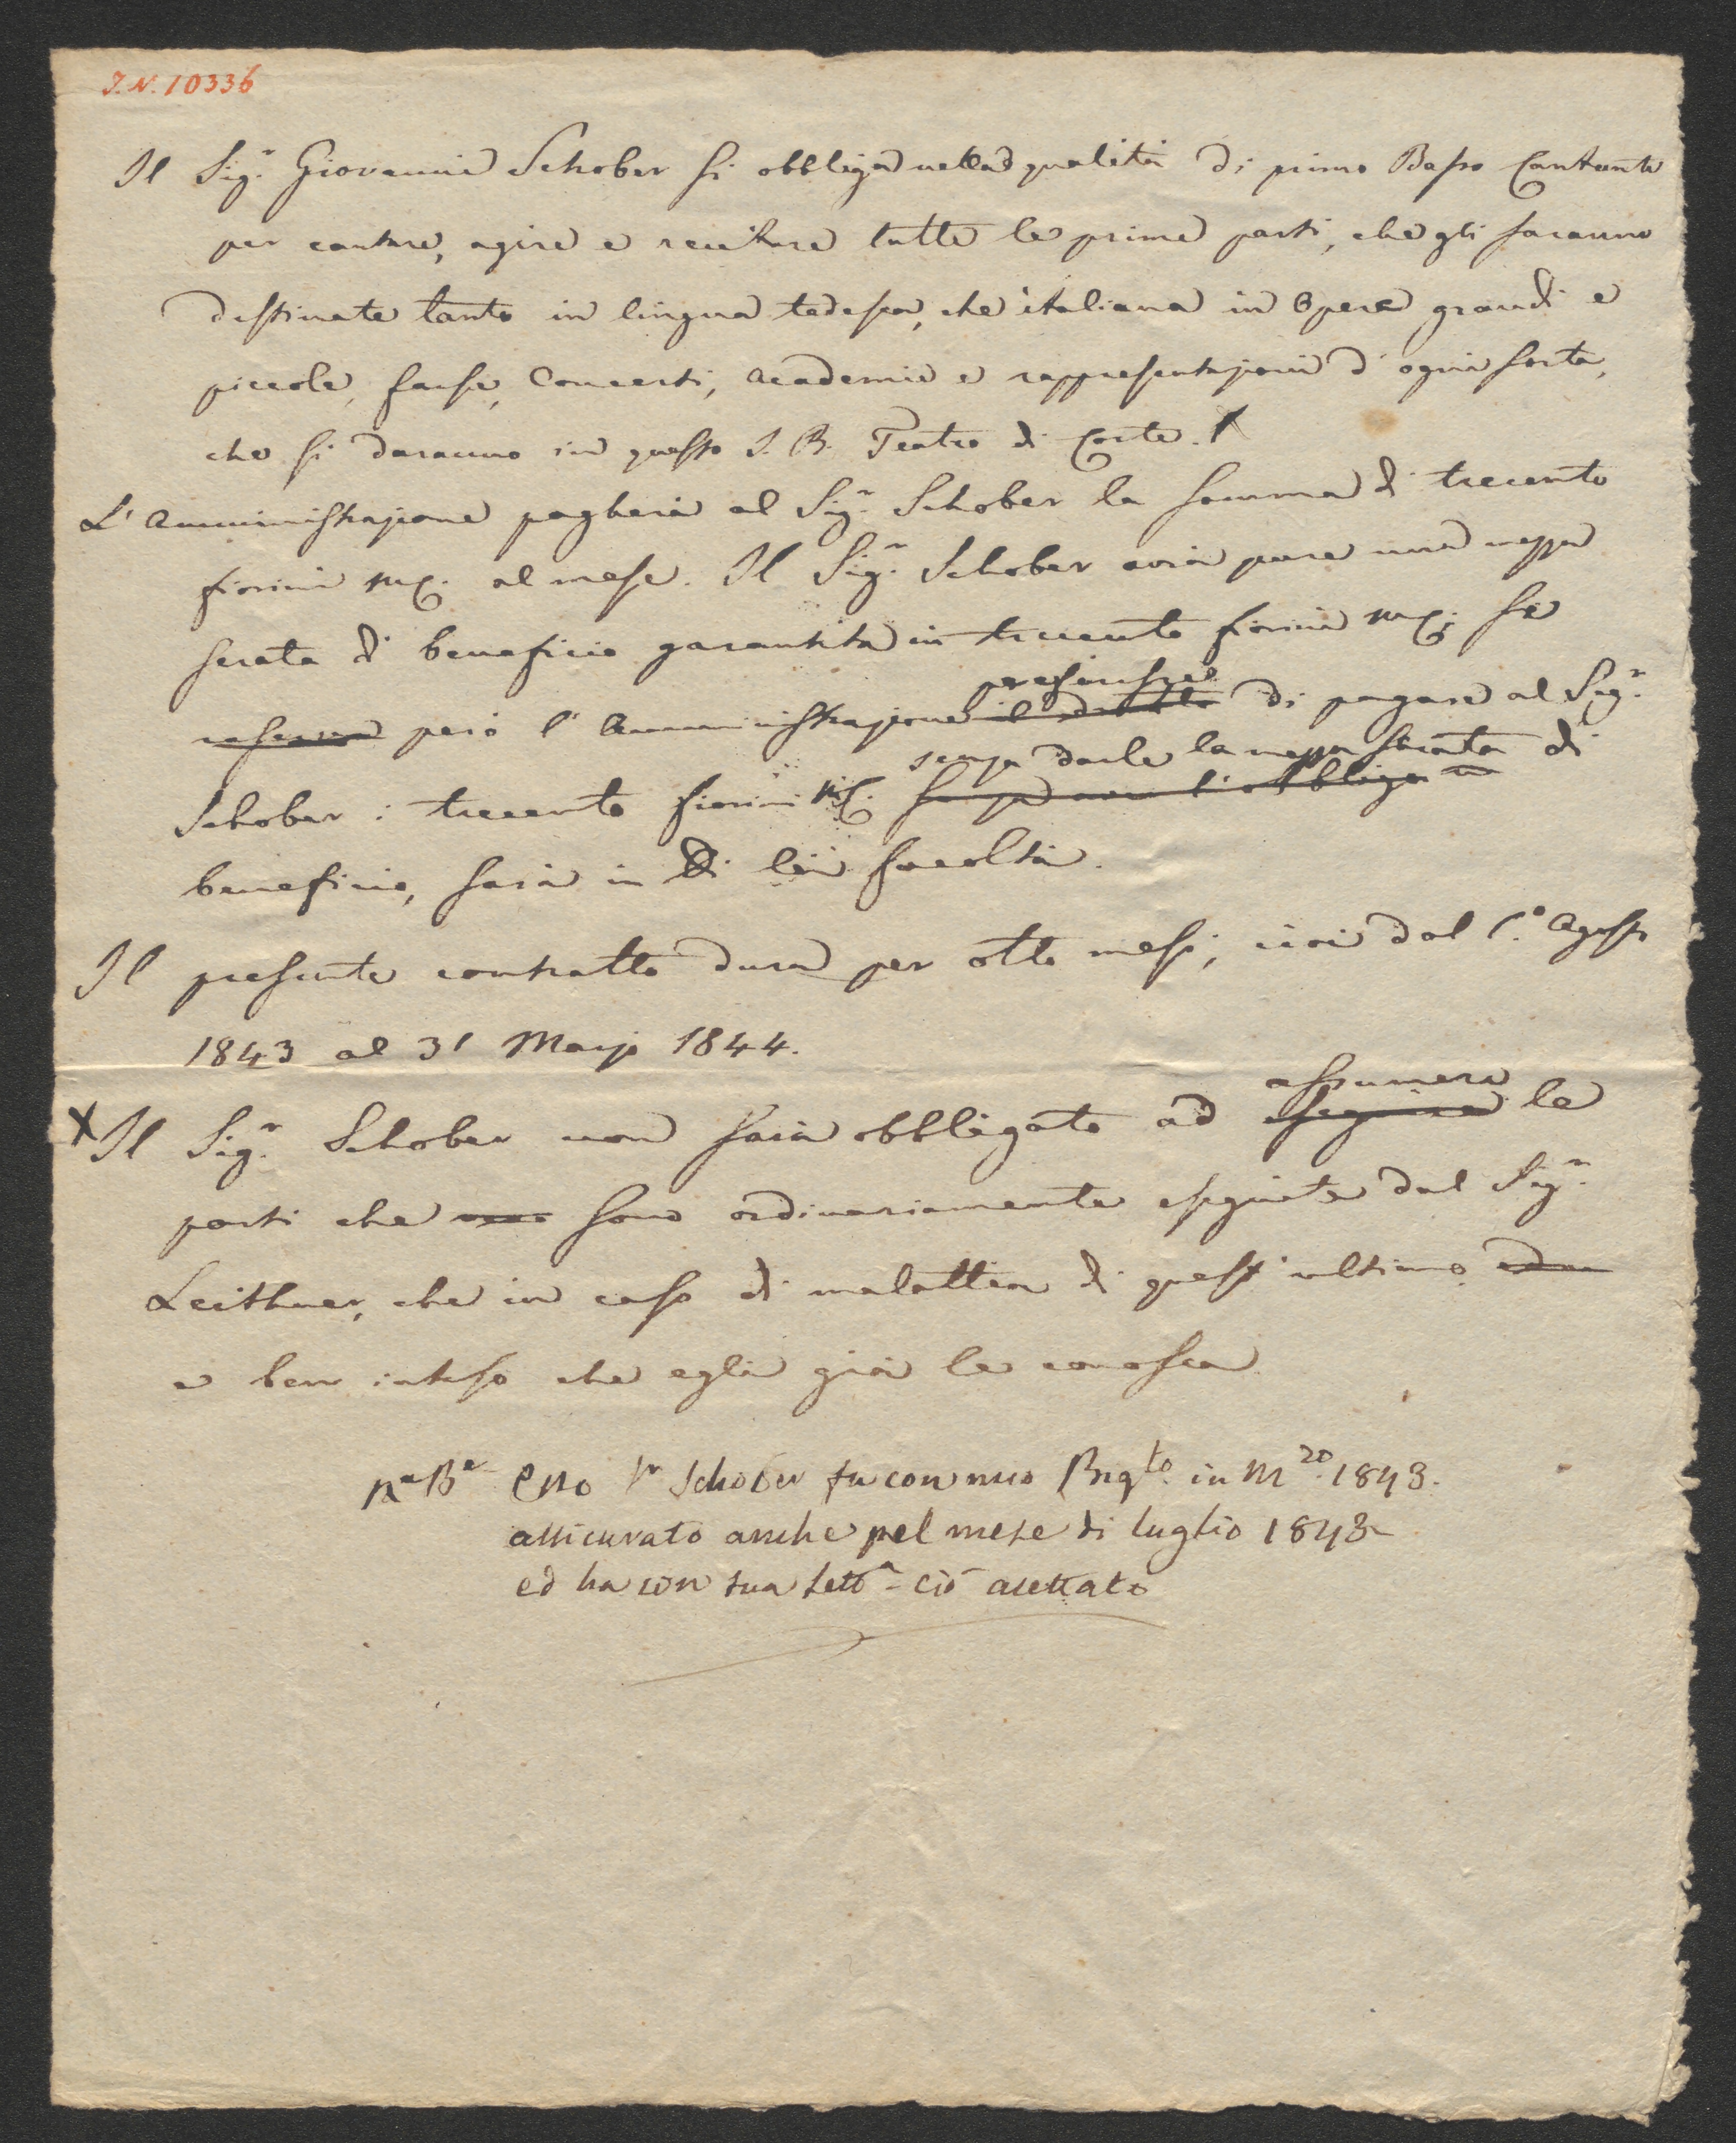 I.N. 10336
Il Sig.r Giovanni Schober si obbliga nella qualità di primo Basso Cantante
per cantare, agire e recitare tutte le prime parti, che gli saranno
destinate tanto in lingua tedesca, che italiana in Opere grandi e
piccole, farse, Concerti, Academie e rappresentazioni d'ogni sorta,
che si daranno in questo I. R. Teatro di Corte. X
L'Amministrazione pagherà al Sig.r Schober la somma di trecento
fiorini al mese. Il Sig.r Schober avrà pure una mezza
serata di beneficio garantita in trecento fiorini Se
preferisse
però l'Amministrazione il diritto di pagare al Sig.r
senza darle la mezza serata di
Schober i trecento fiorini senza aver l'obbligo
beneficio, sarà in di lei facoltà.
Il presente contratto dura per otto mesi, cioè dal 1.o Agosto
1843 al 31 Marzo 1844.
assumere
X Il Sig.r Schober non sarà obbligato ad eseguire le
parti che sono ordinariamente eseguite dal Sig.r
Leithner, che in caso di malattia di quest'ultimo
e ben inteso che egli già le conosca
Na Ba Esso Sr Schober fu con mio in 1843.
assicurato anche pel mese di luglio 1843
ed ha con sua letta ciò acettato